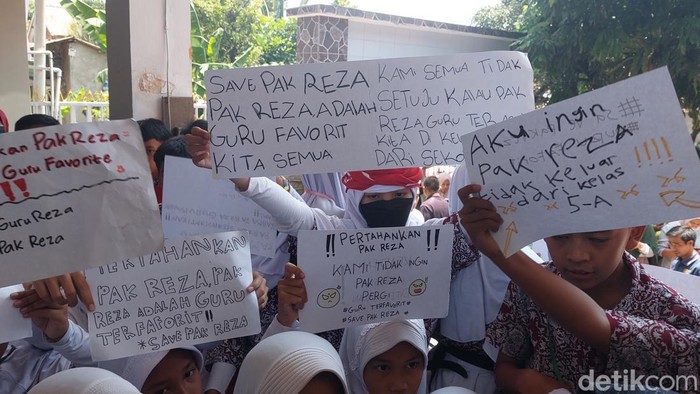 SAVE PAK REZA
PAK REZA ADALAH
GURU FAVORIT
KITA SEMUA
KAMI SEMUA TIDAK
SETUJU KALAU PAK
REZA GURU TER
KITA DI KE
DARI SEKO
AKU INGIN
PAK REZA
tidak KELUAR
dari KELAS
5-A
!!!!
kan Pak REZA
Guru Favorite
!!
Guru REZA
Pak Reza
TERTAHANKAN
PAK REZA, PAK
REZA ADALAH GURU
TERFAFORIT!!
*SAVE PAK REZA
!! PERTAHANKAN !!
PAK REZA
KAMI TIDAK INGIN
PAK REZA
PERGI
#GURU TERFAVORIT
*SAVE PAK REZA
detikcom